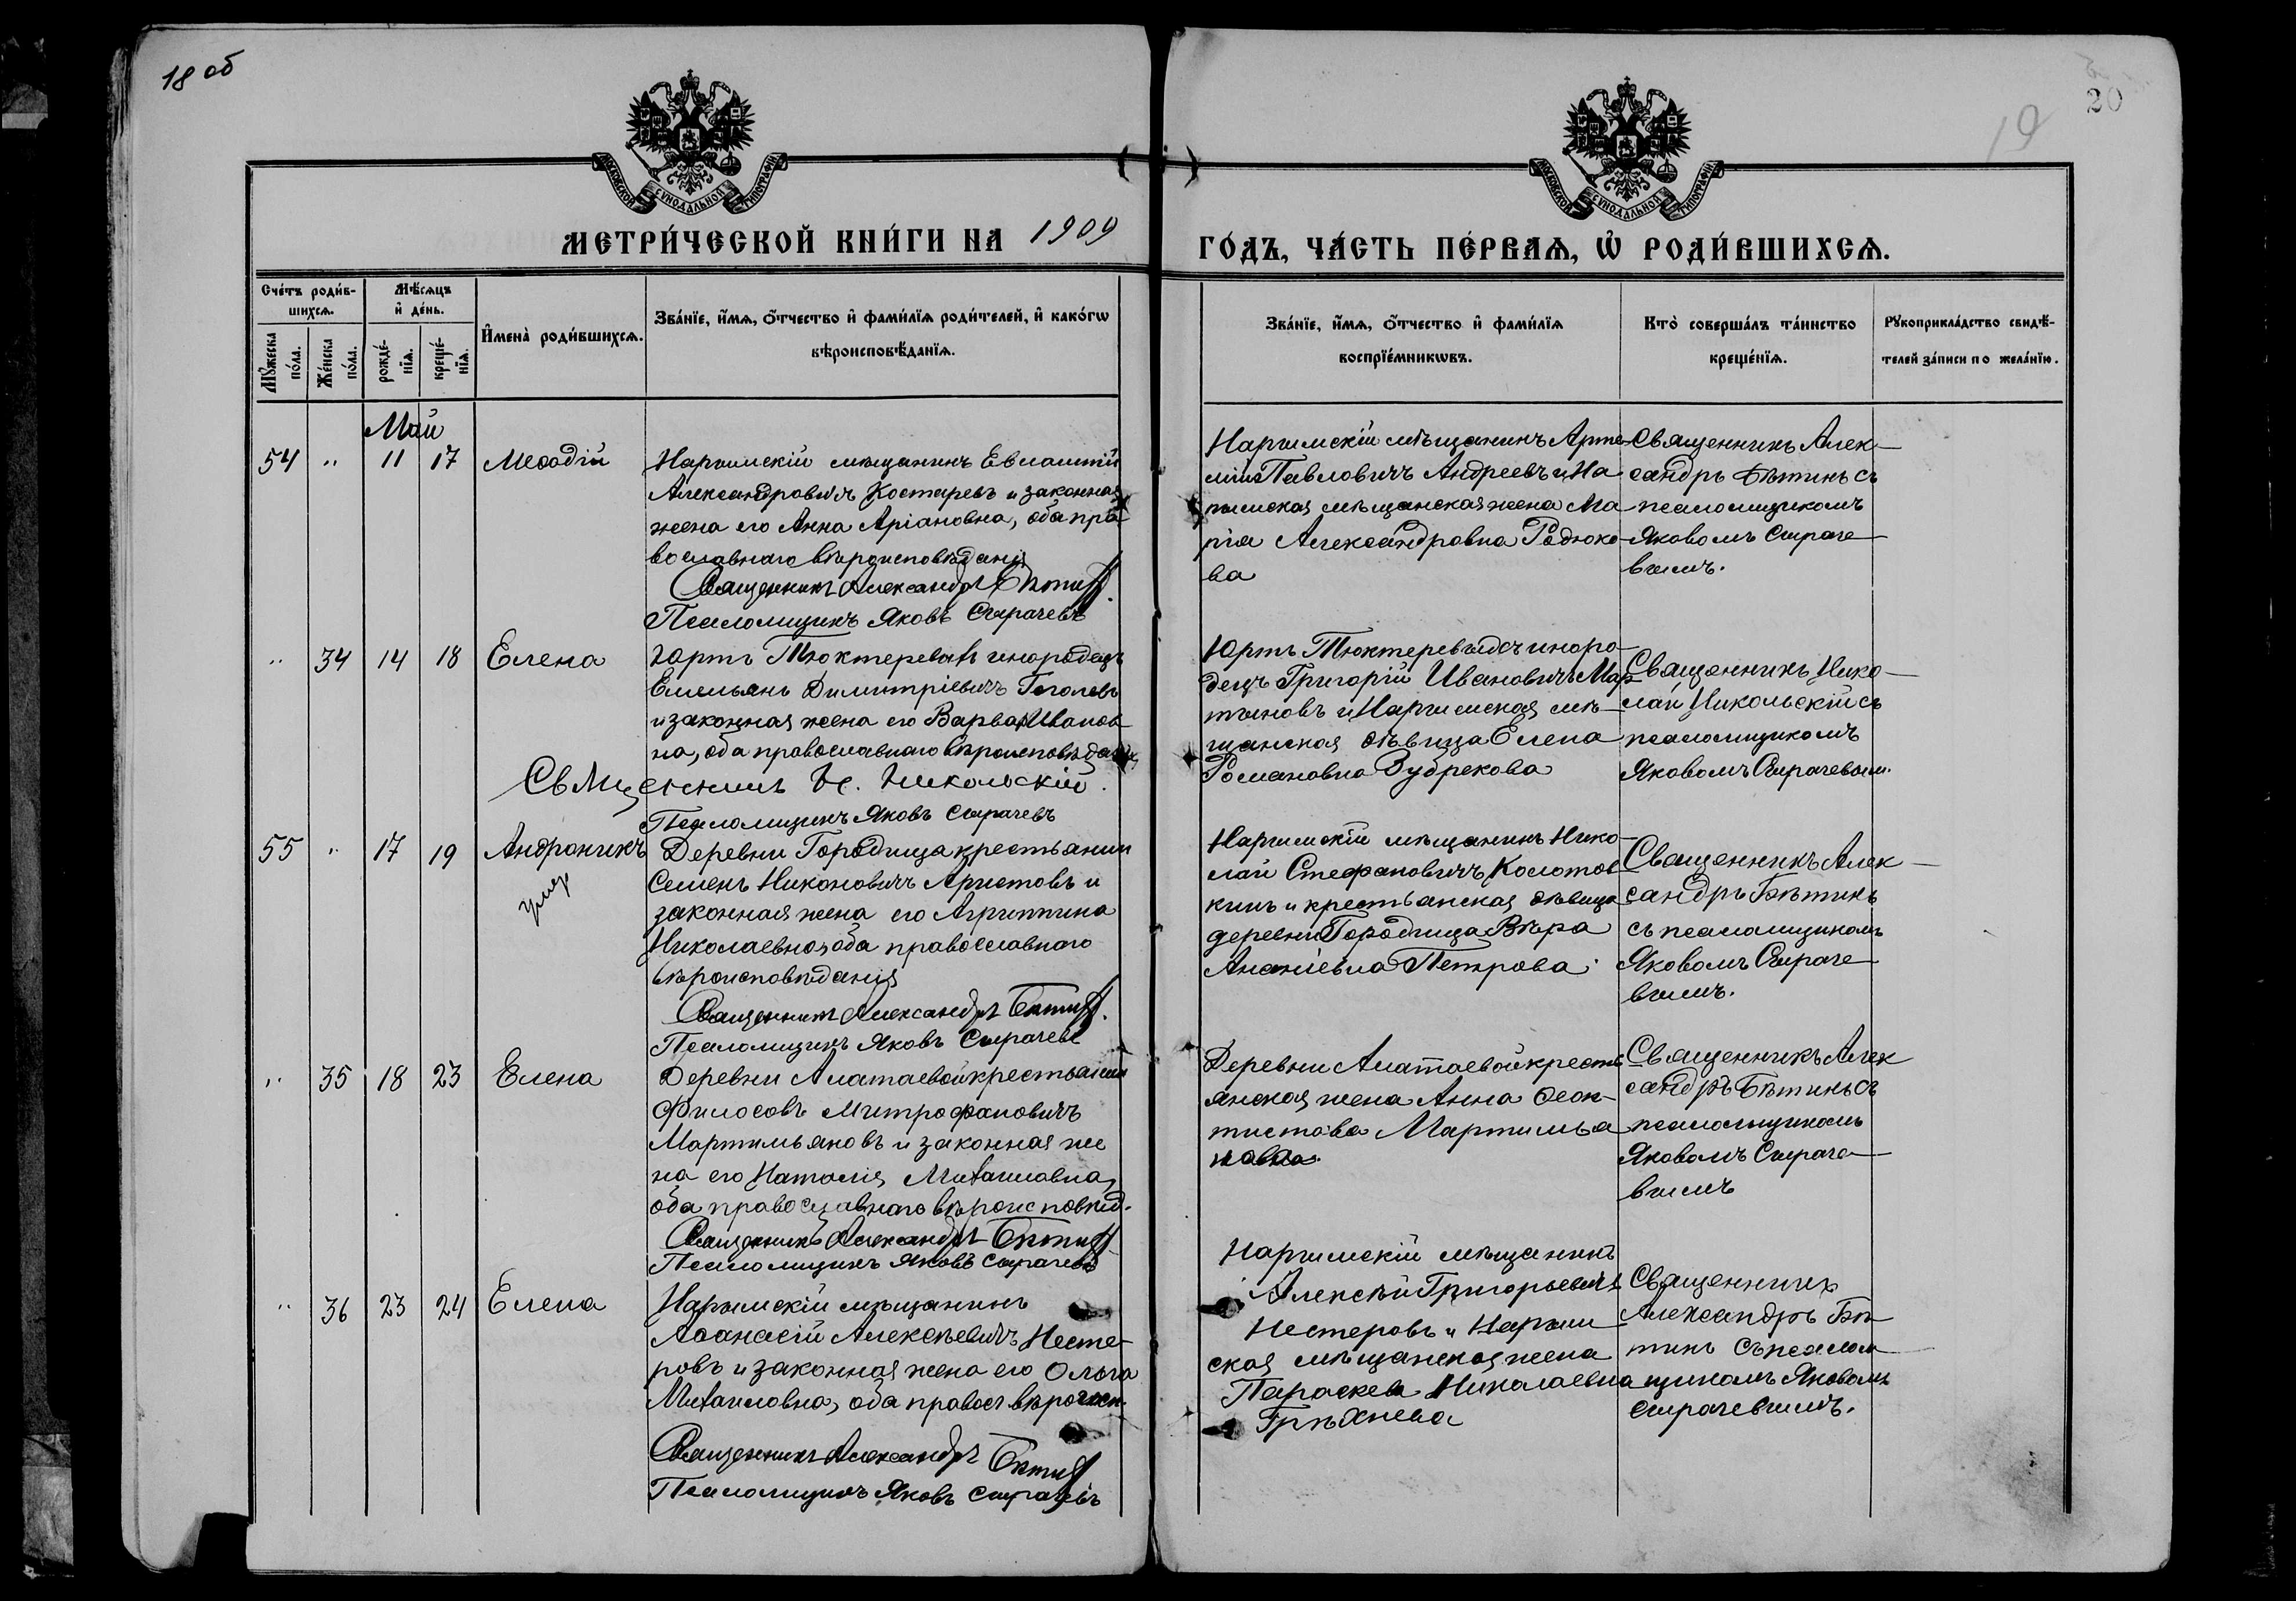 18 об
19
20
МОСКОВСКОЙ СУНОДАЛЬНОЙ ТИПОГРАФІИ
МОСКОВСКОЙ СУНОДАЛЬНОЙ ТИПОГРАФІИ
МЕТРИ́ЧЕСКОЙ КНИ́ГИ НА 1909
ГО́ДЪ, ЧА́СТЬ ПЕ́РВАѦ, Ѡ҆ РОДИ́ВШИХСѦ.
Сче́тъ роди́в-
шихсѧ.
Мѣ́сѧцъ
и҆ де́нь.
Мꙋ́жеска
по́ла.
Же́нска
по́ла.
рожде́-
нїѧ.
креще́-
нїѧ.
И҆мена̀ роди́вшихсѧ.
Зва́нїе, и҆́мѧ, ѻ҆́тчество и҆ фами́лїѧ роди́телей, и҆ како́гѡ
вѣроисповѣ́данїѧ.
Зва́нїе, и҆́мѧ, ѻ҆́тчество и҆ фами́лїѧ
воспрїе́мникѡвъ.
Кто̀ соверша́лъ та́инство
креще́нїѧ.
Рꙋкоприкла́дство свидѣ́-
телей за́писи по жела́нїю.
Май
54 " 11 17 Меѳодій
Нарымскій мѣщанинъ Евлампій
Александровичъ Костаревъ и законная
жена его Анна Аріановна, оба пра-
вославнаго вѣроисповѣданія
Священникъ Александръ Бѣтинъ.
Псаломщикъ Яковъ Сырачевъ
Нарымскій мѣщанинъ Арте-
мій Павловичъ Андреевъ и На
рымская мѣщанская жена Ма
рія Александровна Родюко-
ва
Священникъ Алек-
сандръ Бѣтинъ съ
псаломщикомъ
Яковомъ Сыраче-
вымъ.
" 34 14 18 Елена
Юртъ Тюктеревыхъ инородецъ
Емельянъ Димитріевичъ Гоголевъ
и законная жена его Варвара Иванов-
на, оба православнаго вѣроисповѣдан
Священникъ Н. Никольскій.
Псаломщикъ Яковъ Сырачевъ
Юртъ Тюктеревыхъ иноро-
децъ Григорій Ивановичъ Мар
тыновъ и Нарымская мѣ-
щанская дѣвица Елена
Романовна Зубрекова
Священникъ Нико-
лай Никольскій съ
псаломщикомъ
Яковомъ Сырачевым.
55 " 17 19 Андроникъ
умер
Деревни Городища крестьянин
Семенъ Никоновичъ Аристовъ и
законная жена его Агриппина
Николаевна, оба православнаго
вѣроисповѣданія
Священникъ Александръ Бѣтинъ.
Псаломщикъ Яковъ Сырачевъ
Нарымскій мѣщанинъ Нико-
лай Стефановичъ Колотов
кинъ и крестьянская дѣвица
деревни Городища Вѣра
Ананіевна Петрова.
Священникъ Алек-
сандръ Бѣтинъ
съ псаломщикомъ
Яковомъ Сыраче-
вымъ.
" 35 18 23 Елена
Деревни Алатаевой крестьянин
Филосовъ Митрофановичъ
Мартемьяновъ и законная же
на его Наталія Михаиловна,
оба православнаго вѣроисповѣд.
Священникъ Александръ Бѣтинъ
Псаломщикъ Яковъ Сырачевъ
Деревни Алатаевой кресть
янская жена Анна Ѳеок-
тистова Мартемья
нова.
Священникъ Алек
сандръ Бѣтинъ съ
псаломщикомъ
Яковомъ Сыраче-
вымъ
" 36 23 24 Елена
Нарымскій мѣщанинъ
Аѳанасій Алексѣевичъ Несте-
ровъ и законная жена его Ольга
Михаиловна, оба правосл вѣроисп.
Священникъ Александръ Бѣтинъ
Псаломщикъ Яковъ Сырачевъ
Нарымскій мѣщанинъ
Алексѣй Григорьевичъ
Нестеровъ и Нарым
ская мѣщанская жена
Параскева Николаевна
Грѣхнева
Священникъ
Александръ Бѣ-
тинъ съ псалом-
щикомъ Яковомъ
Сырачевымъ.